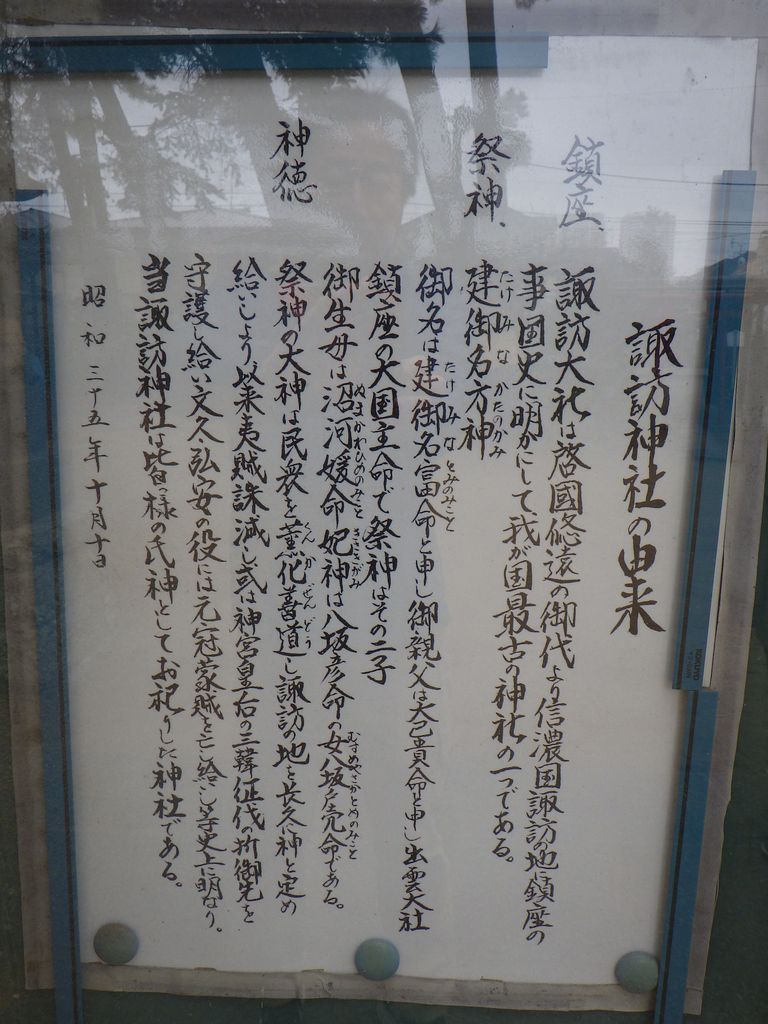 諏訪神社の由来
鎮座、
諏訪大社は啓國悠遠の御代より信濃国諏訪の地に鎮座の
事国史に明かにして、我が国最古の神社の一つである。
祭神、
建御名方神
たけみな かたのかみ
御名は建御名富命と申し御親父は大己貴命と申し出雲大社
たけみな とみのみこと
鎮座の大国主命で祭神はその二子
御生母は沼河媛命妃神は八坂彦命の女八坂刀売命である。
ぬまかわひめのみこと きさきがみ むすめやさかとめのみこと
神徳
祭神の大神は民衆を薫化善道し諏訪の地を長久に神と定め
くんか ぜんどう
給いしより、以来夷賊誅滅し或は神宮皇后の三韓征伐の折御先を
守護し給い文久、弘安の役には元冦蒙賊を亡し給いし等史上に明なり。
当諏訪神社は皆様の氏神としてお祀りした神社である。
昭和三十五年十月十日
KOKUYO